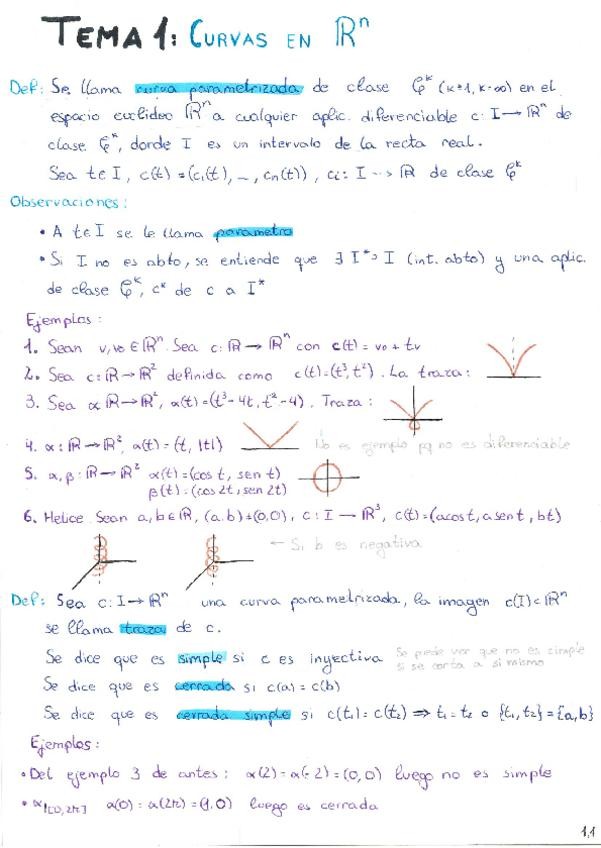 TEMA 1: CURVAS EN ℝⁿ
Def: Se llama curva parametrizada de clase 𝒞ᵏ (k≥1, k=∞) en el
espacio euclídeo ℝⁿ a cualquier aplic. diferenciable c: I → ℝⁿ de
clase 𝒞ᵏ, donde I es un intervalo de la recta real.
Sea t∈I, c(t)=(c₁(t), ..., cₙ(t)), cᵢ: I → ℝ de clase 𝒞ᵏ
Observaciones:
• A t∈I se le llama parametro
• Si I no es abto, se entiende que ∃ I*⊃I (int. abto) y una aplic.
de clase 𝒞ᵏ, c* de c a I*
Ejemplos:
1. Sean v, v₀ ∈ ℝⁿ. Sea c: ℝ → ℝⁿ con c(t) = v₀ + tv
2. Sea c: ℝ → ℝ² definida como c(t)=(t³, t²). La traza:
3. Sea α: ℝ → ℝ², α(t)=(t³-4t, t²-4). Traza:
4. α: ℝ → ℝ², α(t)=(t, |t|) No es ejemplo pq no es diferenciable
5. α, β: ℝ → ℝ² α(t)=(cos t, sen t)
β(t)=(cos 2t, sen 2t)
6. Helice. Sean a, b∈ℝ, (a,b)≠(0,0), c: I → ℝ³, c(t)=(a cos t, a sen t, bt)
← Si b es negativa
Def: Sea c: I → ℝⁿ una curva parametrizada, la imagen c(I)⊂ℝⁿ
se llama traza de c.
Se dice que es simple si c es inyectiva Se puede ver que no es simple
si se corta a si mismo
Se dice que es cerrada si c(a) = c(b)
Se dice que es cerrada simple si c(t₁) = c(t₂) ⟹ t₁ = t₂ o {t₁, t₂} = {a, b}
Ejemplos:
• Del ejemplo 3 de antes: α(2) = α(-2) = (0, 0) luego no es simple
• α|[0, 2π] α(0) = α(2π) = (1, 0) luego es cerrada
1,1